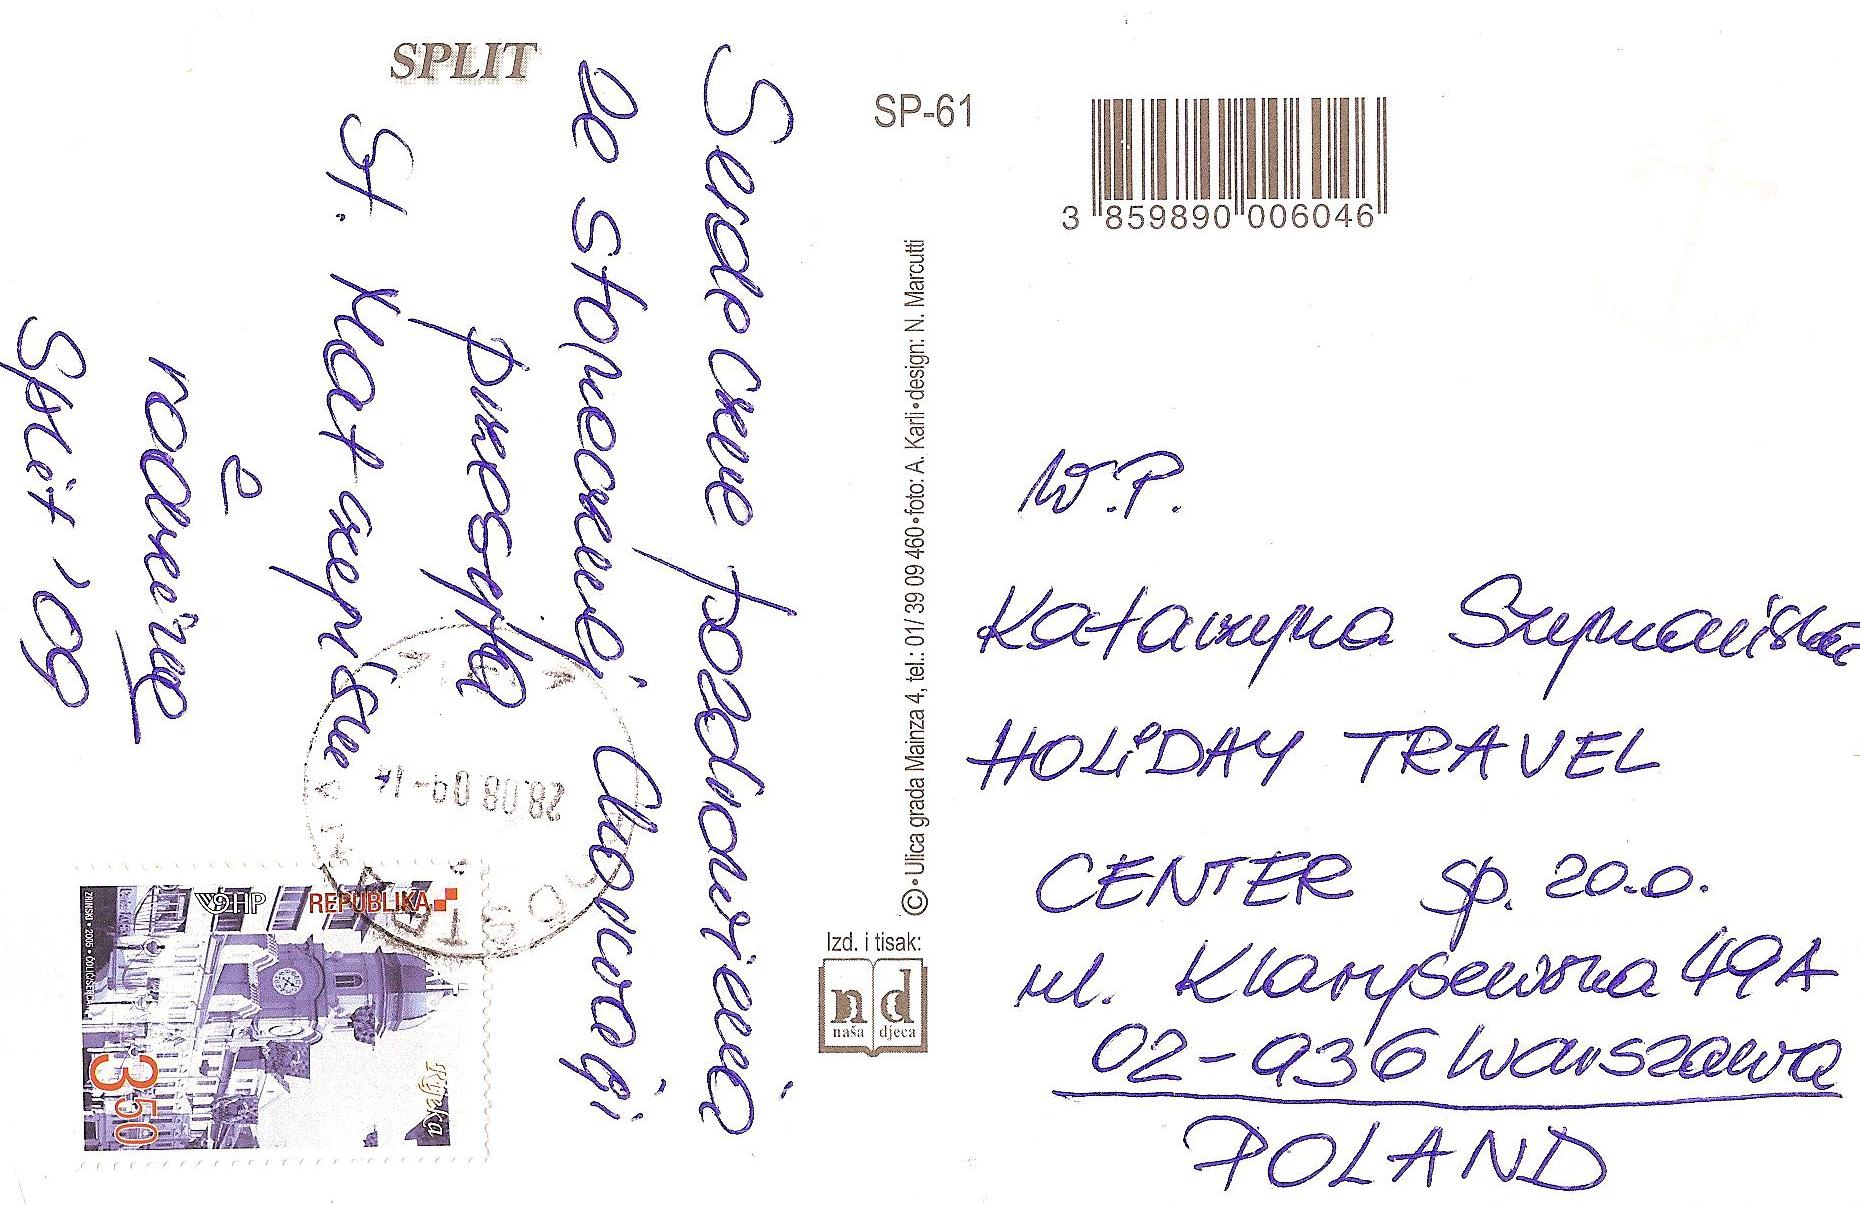 SPLIT
Serdeczne pozdrowienia
ze słonecznej Chorwacji
przesyła
St.
z
rodziną
Split '09
SP-61
3 859890 006046
© • Ulica grada Mainza 4, tel.: 01/ 39 09 460 • foto: A. Karli • design: N. Marcutti
Izd. i tisak:
nd
naša djeca
W.P.
Katarzyna Szymańska
HOLiDAY TRAVEL
CENTER Sp. z o.o.
ul. Klarysewska 49A
02-936 Warszawa
POLAND
28.08.09-14
HP
REPUBLIKA
Rijeka
3.50